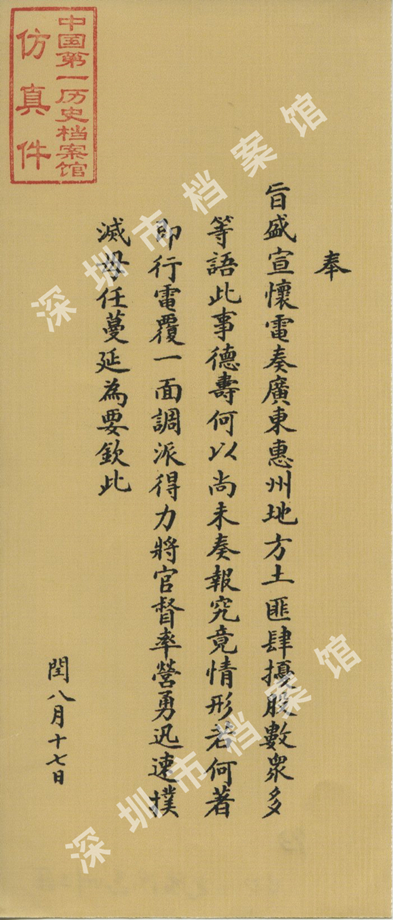 奉
旨盛宣懷電奏廣東惠州地方土匪肆擾股數衆多
等語此事德壽何以尚未奏報究竟情形若何著
即行電覆一面調派得力將官督率營勇迅速撲
滅毋任蔓延為要欽此
閏八月十七日
中国第一历史档案馆
仿真件
深圳市档案馆
深圳市档案馆